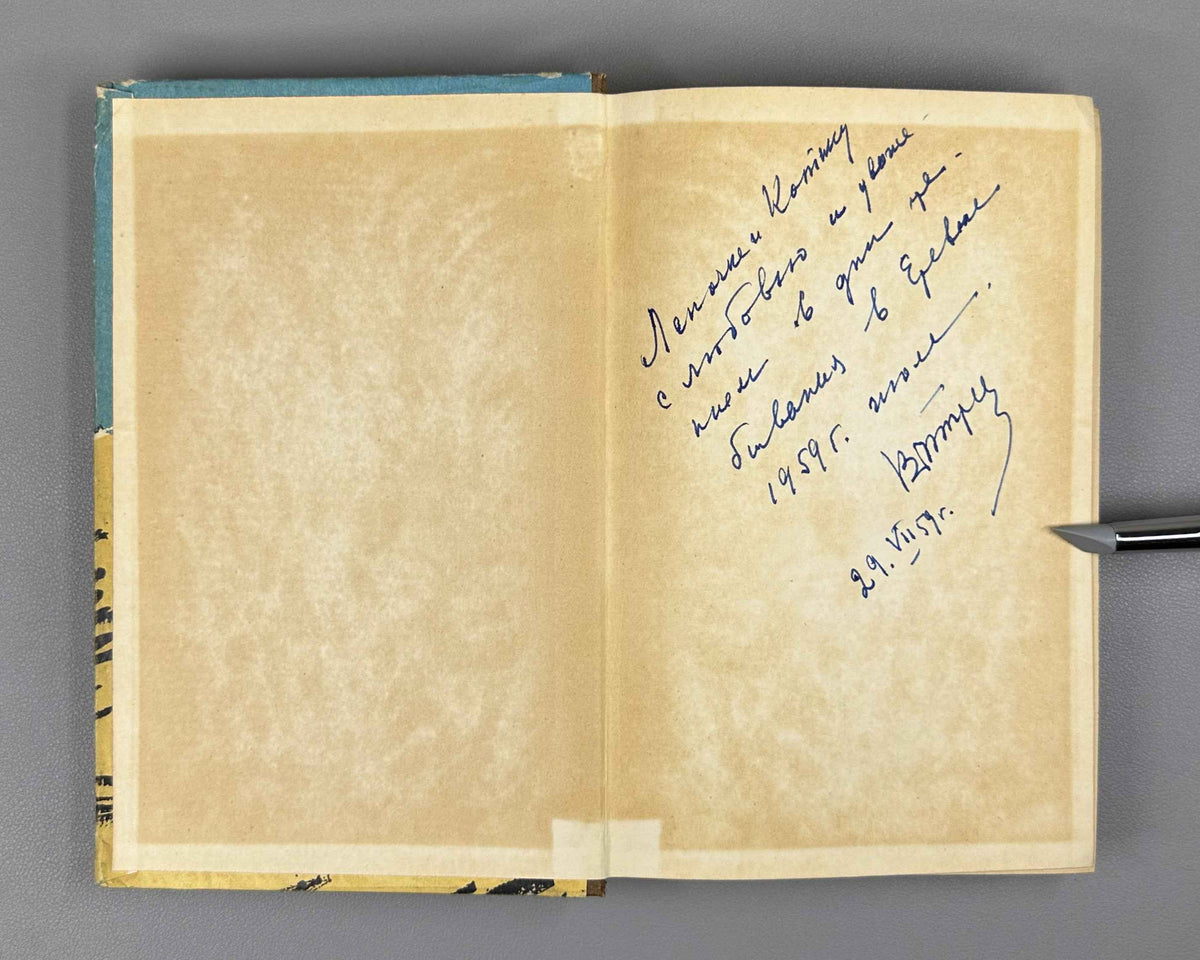 Леночке и Котику
с любовью и уваже
нием в дни пре-
бывания в Ереване
1959 г. июле.
29. VII 59 г.